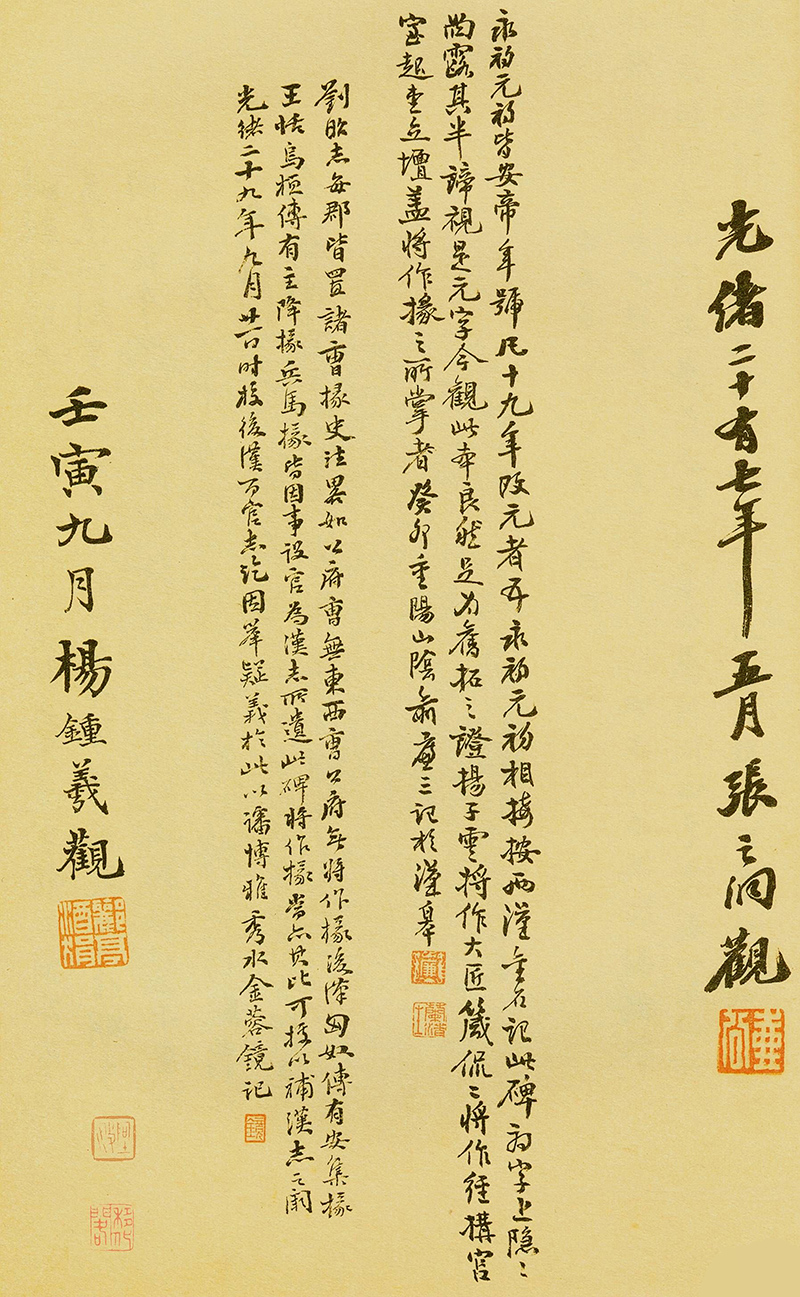 光緒二十有七年五月張之洞觀
永初元初皆安帝年號凡十九年改元者五永初元初相接按西漢金石記此碑初字上隱〻
尚露其半諦視是元字今觀此本良然足為舊拓之證揚子雲將作大匠箴侃〻將作經構宮
室起堂立壇蓋將作掾之所掌者癸卯重陽山陰俞廉三記於漢皋
劉昭志每郡皆置諸曹掾史注畧如公府曹無東西曹公府無將作掾後漢匈奴傳有安集掾
王恬烏桓傳有主降掾兵馬掾皆因事設官為漢志所遺此碑將作掾當亦其比可據以補漢志之闕
光緒二十九年九月廿一日時校後漢百官志訖因舉疑義於此以諗博雅秀水金蓉鏡記
壬寅九月楊鍾羲觀